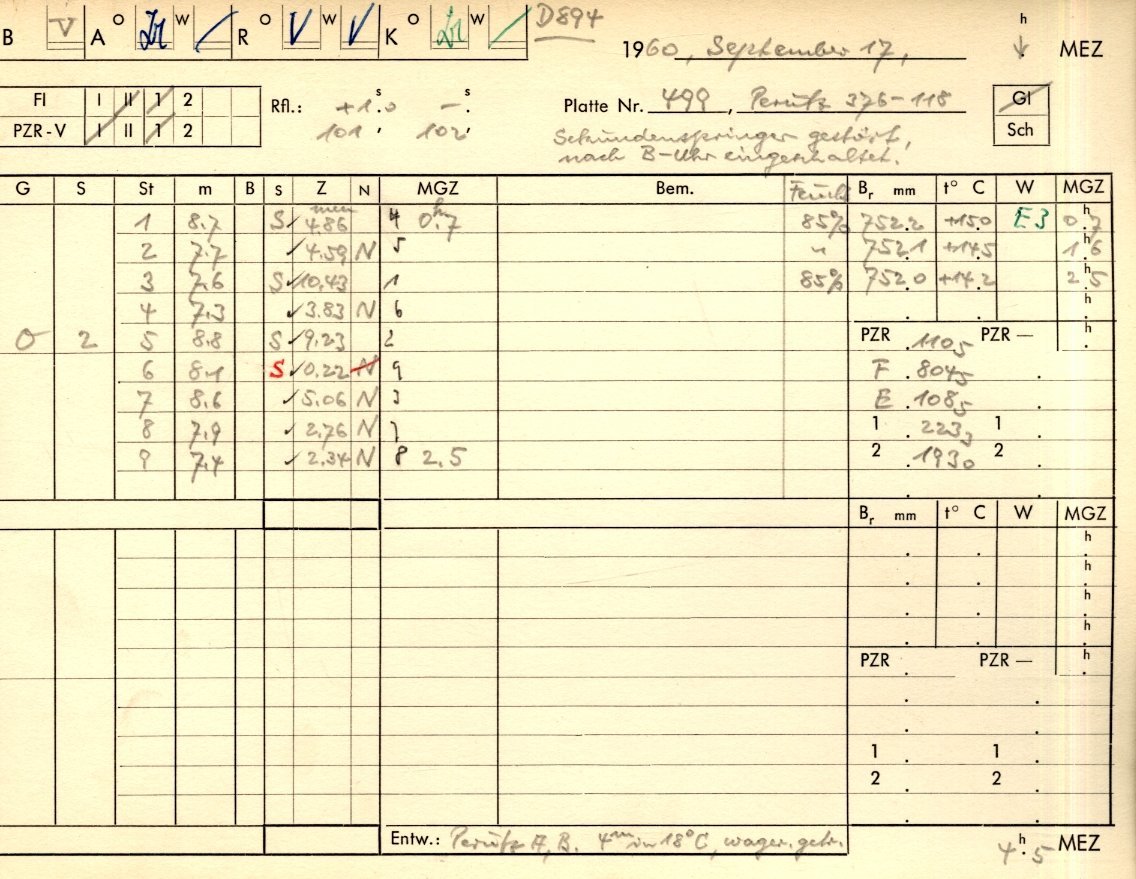 B V A O W R O V W V K O W D894
1960, September 17, h MEZ
FI I II 1 2
PZR-V I II 1 2
Rfl.: +1.0 s - . s
101, 102,
Platte Nr. 499, Perutz 376-118
Gl
Sch
Sekundenspringer gestört,
nach B-Uhr eingeschaltet.
G S St m B s Z N MGZ Bem. Feucht B r mm t° C W MGZ
1 8.7 S ✓ 4.86 4 0.7 h 85% 752.2 +15.0 E3 0.7 h
2 7.7 ✓ 4.59 N 5 " 752.1 +14.5 1.6 h
3 7.6 S ✓ 10.43 1 85% 752.0 +14.2 2.5 h
4 7.3 ✓ 3.83 N 6 h
O 2 5 8.8 S ✓ 9.23 2 PZR .1105 PZR — . h
6 8.1 S ✓ 0.22 N 9 F .8045 .
7 8.6 ✓ 5.06 N 3 E .1085 .
8 7.9 ✓ 2.76 N 7 1 .2233 1 .
9 7.4 ✓ 2.34 N 8 2.5 2 .1930 2 .
B r mm t° C W MGZ
h
h
h
h
PZR . PZR — . h
1 . 1 .
2 . 2 .
Entw.: Perutz A, B. 4 m in 18°C, wager. getr. 4.5 h MEZ